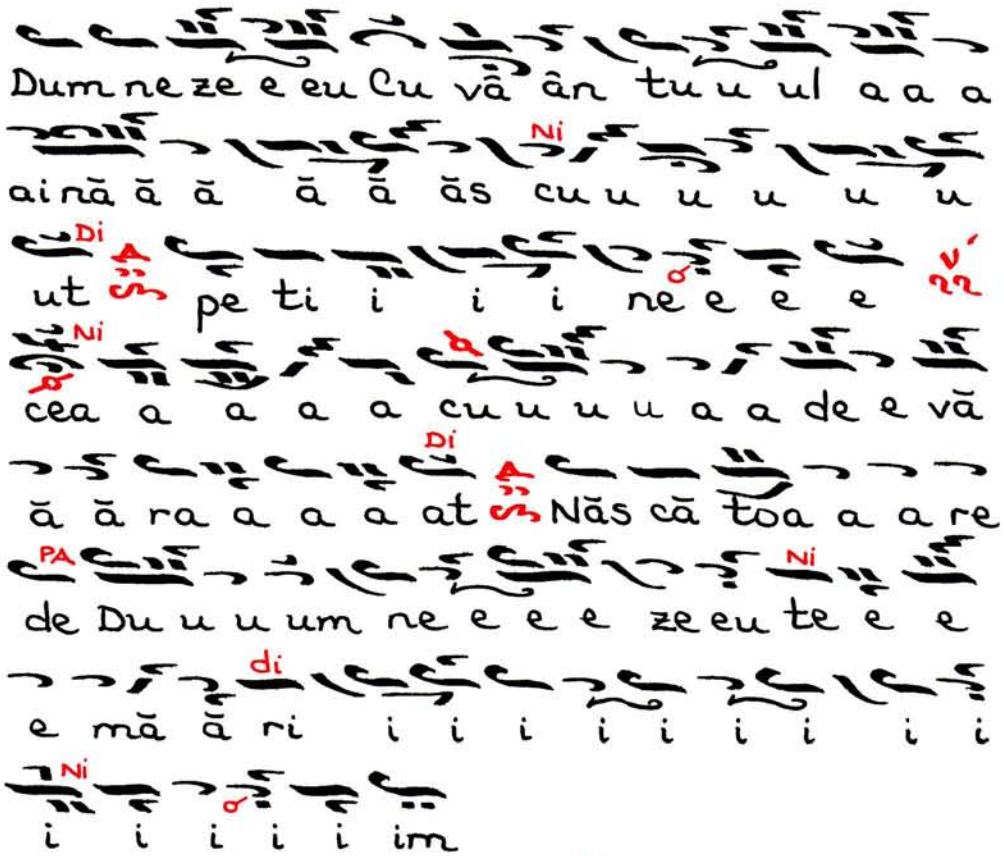 Dum ne ze e eu Cu vâ ân tu u ul a a a
Ni
ai nă ă ă ă ă ăs cu u u u u u
Di
ut pe ti i i i ne e e e
Ni
cea a a a a cu u u u a a de e vă
Di
ă ă ra a a a at Năs că toa a a re
PA Ni
de Du u u um ne e e e ze eu te e e
di
e mă ă ri i i i i i i i i i
Ni
i i i i i im